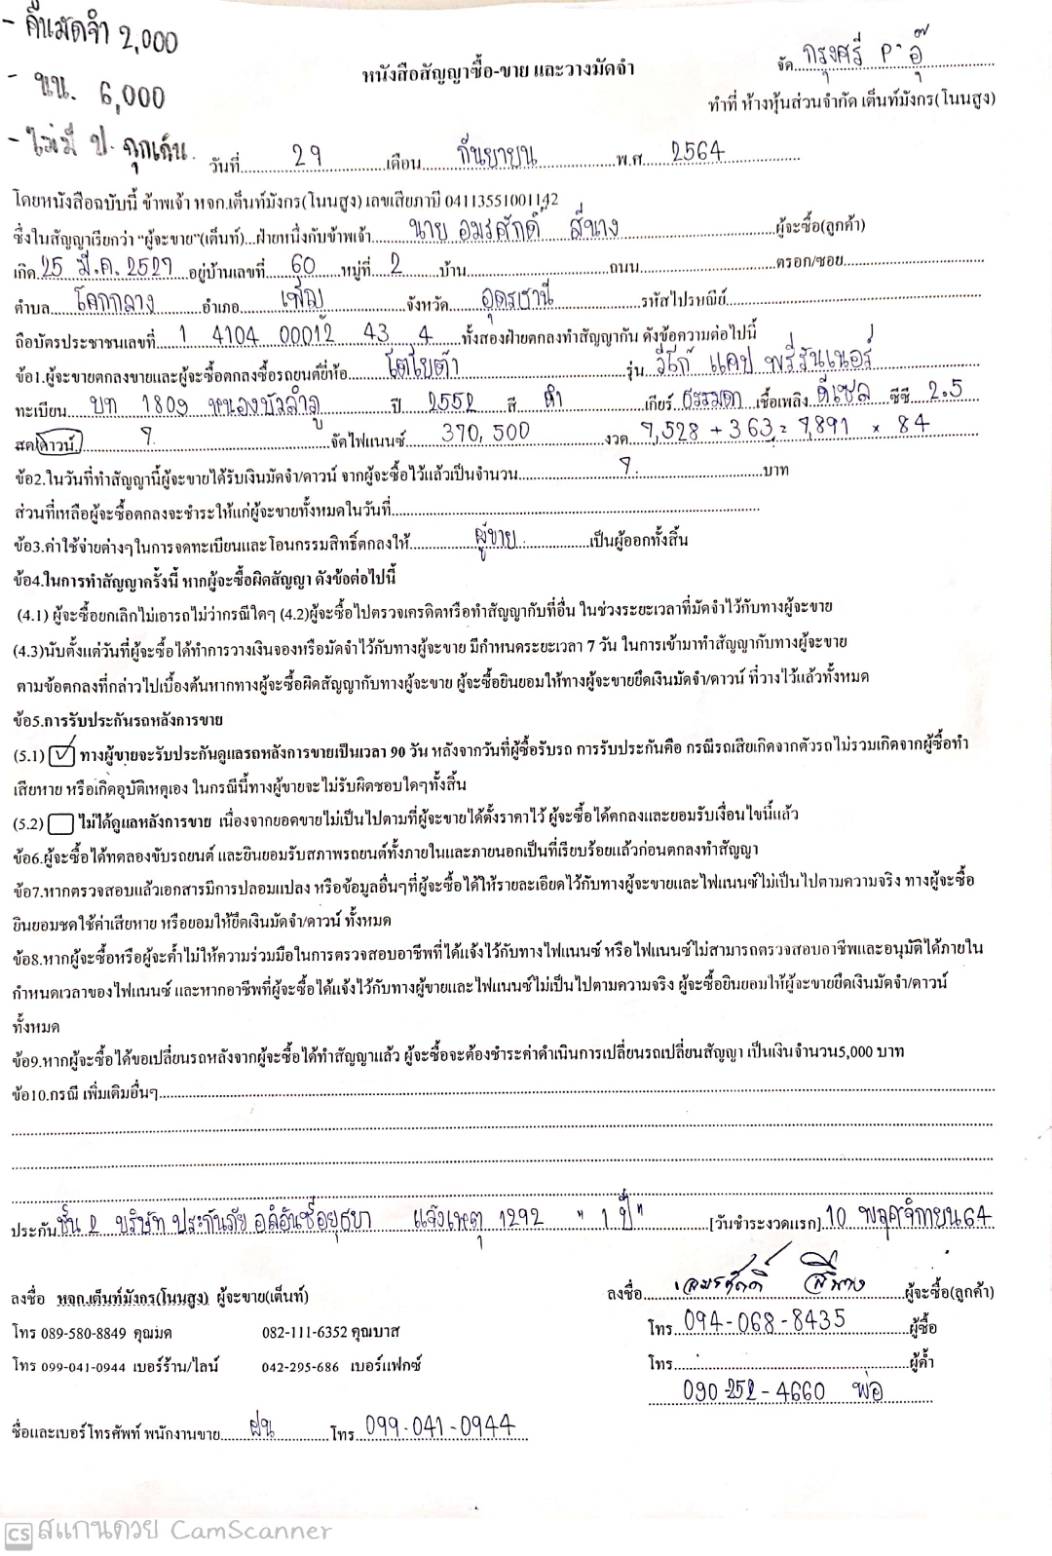 - คืนมัดจำ 2,000
- นน. 6,000
- ไม่มี ป. ฉุกเฉิน.
จัด กรุงศรี P. อุ๊
หนังสือสัญญาซื้อ-ขาย และวางมัดจำ
ทำที่ ห้างหุ้นส่วนจำกัด เต็นท์มังกร(โนนสูง)
วันที่ 29 เดือน กันยายน พ.ศ. 2564
โดยหนังสือฉบับนี้ ข้าพเจ้า หจก.เต็นท์มังกร(โนนสูง) เลขเสียภาษี 04113551001142
ซึ่งในสัญญาเรียกว่า "ผู้จะขาย"(เต็นท์)...ฝ่ายหนึ่งกับข้าพเจ้า นาย อมรศักดิ์ สีนาง ผู้จะซื้อ(ลูกค้า)
เกิด 25 มี.ค. 2527 อยู่บ้านเลขที่ 60 หมู่ที่ 2 บ้าน ถนน ตรอก/ซอย
ตำบล โคกกลาง อำเภอ เพ็ญ จังหวัด อุดรธานี รหัสไปรษณีย์
ถือบัตรประชาชนเลขที่ 1 4104 00012 43 4 ทั้งสองฝ่ายตกลงทำสัญญากัน ดังข้อความต่อไปนี้
ข้อ1.ผู้จะขายตกลงขายและผู้จะซื้อตกลงซื้อรถยนต์ยี่ห้อ โตโยต้า รุ่น วีโก้ แคป พรีรันเนอร์
ทะเบียน บท 1809 หนองบัวลำภู ปี 2552 สี ดำ เกียร์ ธรรมดา เชื้อเพลิง ดีเซล ซีซี 2.5
สด/ดาวน์ จัดไฟแนนซ์ 370,500 งวด 7,528 + 363 = 7,891 x 84
ข้อ2.ในวันที่ทำสัญญานี้ผู้จะขายได้รับเงินมัดจำ/ดาวน์ จากผู้จะซื้อไว้แล้วเป็นจำนวน บาท
ส่วนที่เหลือผู้จะซื้อตกลงจะชำระให้แก่ผู้จะขายทั้งหมดในวันที่
ข้อ3.ค่าใช้จ่ายต่างๆในการจดทะเบียนและโอนกรรมสิทธิ์ตกลงให้ ผู้ขาย เป็นผู้ออกทั้งสิ้น
ข้อ4.ในการทำสัญญาครั้งนี้ หากผู้จะซื้อผิดสัญญา ดังข้อต่อไปนี้
(4.1) ผู้จะซื้อยกเลิกไม่เอารถไม่ว่ากรณีใดๆ (4.2)ผู้จะซื้อไปตรวจเครดิตหรือทำสัญญากับที่อื่น ในช่วงระยะเวลาที่มัดจำไว้กับทางผู้จะขาย
(4.3)นับตั้งแต่วันที่ผู้จะซื้อได้ทำการวางเงินจองหรือมัดจำไว้กับทางผู้จะขาย มีกำหนดระยะเวลา 7 วัน ในการเข้ามาทำสัญญากับทางผู้จะขาย
ตามข้อตกลงที่กล่าวไปเบื้องต้นหากทางผู้จะซื้อผิดสัญญากับทางผู้จะขาย ผู้จะซื้อยินยอมให้ทางผู้จะขายยึดเงินมัดจำ/ดาวน์ ที่วางไว้แล้วทั้งหมด
ข้อ5.การรับประกันรถหลังการขาย
(5.1) ทางผู้ขายจะรับประกันดูแลรถหลังการขายเป็นเวลา 90 วัน หลังจากวันที่ผู้ซื้อรับรถ การรับประกันคือ กรณีรถเสียเกิดจากตัวรถไม่รวมเกิดจากผู้ซื้อทำ
เสียหาย หรือเกิดอุบัติเหตุเอง ในกรณีนี้ทางผู้ขายจะไม่รับผิดชอบใดๆทั้งสิ้น
(5.2) ไม่ได้ดูแลหลังการขาย เนื่องจากยอดขายไม่เป็นไปตามที่ผู้จะขายได้ตั้งราคาไว้ ผู้จะซื้อได้ตกลงและยอมรับเงื่อนไขนี้แล้ว
ข้อ6.ผู้จะซื้อได้ทดลองขับรถยนต์ และยินยอมรับสภาพรถยนต์ทั้งภายในและภายนอกเป็นที่เรียบร้อยแล้วก่อนตกลงทำสัญญา
ข้อ7.หากตรวจสอบแล้วเอกสารมีการปลอมแปลง หรือข้อมูลอื่นๆที่ผู้จะซื้อได้ให้รายละเอียดไว้กับทางผู้จะขายและไฟแนนซ์ไม่เป็นไปตามความจริง ทางผู้จะซื้อ
ยินยอมชดใช้ค่าเสียหาย หรือยอมให้ยึดเงินมัดจำ/ดาวน์ ทั้งหมด
ข้อ8.หากผู้จะซื้อหรือผู้จะค้ำไม่ให้ความร่วมมือในการตรวจสอบอาชีพที่ได้แจ้งไว้กับทางไฟแนนซ์ หรือไฟแนนซ์ไม่สามารถตรวจสอบอาชีพและอนุมัติได้ภายใน
กำหนดเวลาของไฟแนนซ์ และหากอาชีพที่ผู้จะซื้อได้แจ้งไว้กับทางผู้ขายและไฟแนนซ์ไม่เป็นไปตามความจริง ผู้จะซื้อยินยอมให้ผู้จะขายยึดเงินมัดจำ/ดาวน์
ทั้งหมด
ข้อ9.หากผู้จะซื้อได้ขอเปลี่ยนรถหลังจากผู้จะซื้อได้ทำสัญญาแล้ว ผู้จะซื้อจะต้องชำระค่าดำเนินการเปลี่ยนรถเปลี่ยนสัญญา เป็นเงินจำนวน5,000 บาท
ข้อ10.กรณี เพิ่มเติมอื่นๆ
ประกัน ชั้น 2 บริษัท ประกันภัย อลิอันซ์อยุธยา แจ้งเหตุ 1292 " 1 ปี " [วันชำระงวดแรก] 10 พฤศจิกายน 64
ลงชื่อ หจก.เต็นท์มังกร(โนนสูง) ผู้จะขาย(เต็นท์) ลงชื่อ อมรศักดิ์ สีนาง ผู้จะซื้อ(ลูกค้า)
โทร 089-580-8849 คุณมด 082-111-6352 คุณบาส โทร. 094-068-8435 ผู้ซื้อ
โทร 099-041-0944 เบอร์ร้าน/ไลน์ 042-295-686 เบอร์แฟกซ์ โทร. ผู้ค้ำ
090-252-4660 พ่อ
ชื่อและเบอร์โทรศัพท์ พนักงานขาย ฝน โทร 099-041-0944
CS สแกนด้วย CamScanner